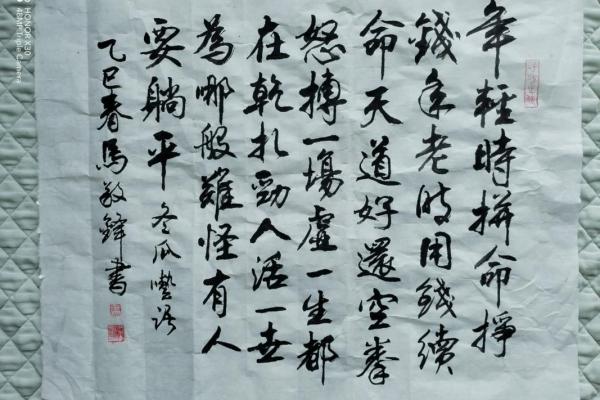 年輕時拼命掙
錢年老時用錢續
命天道好還空拳
怒搏一場虛一生都
在乾扎勁人活一世
為哪般難怪有人
要躺平 冬瓜囈語
乙巳春馬鋒書
HONOR X30
48MP Triple Camera